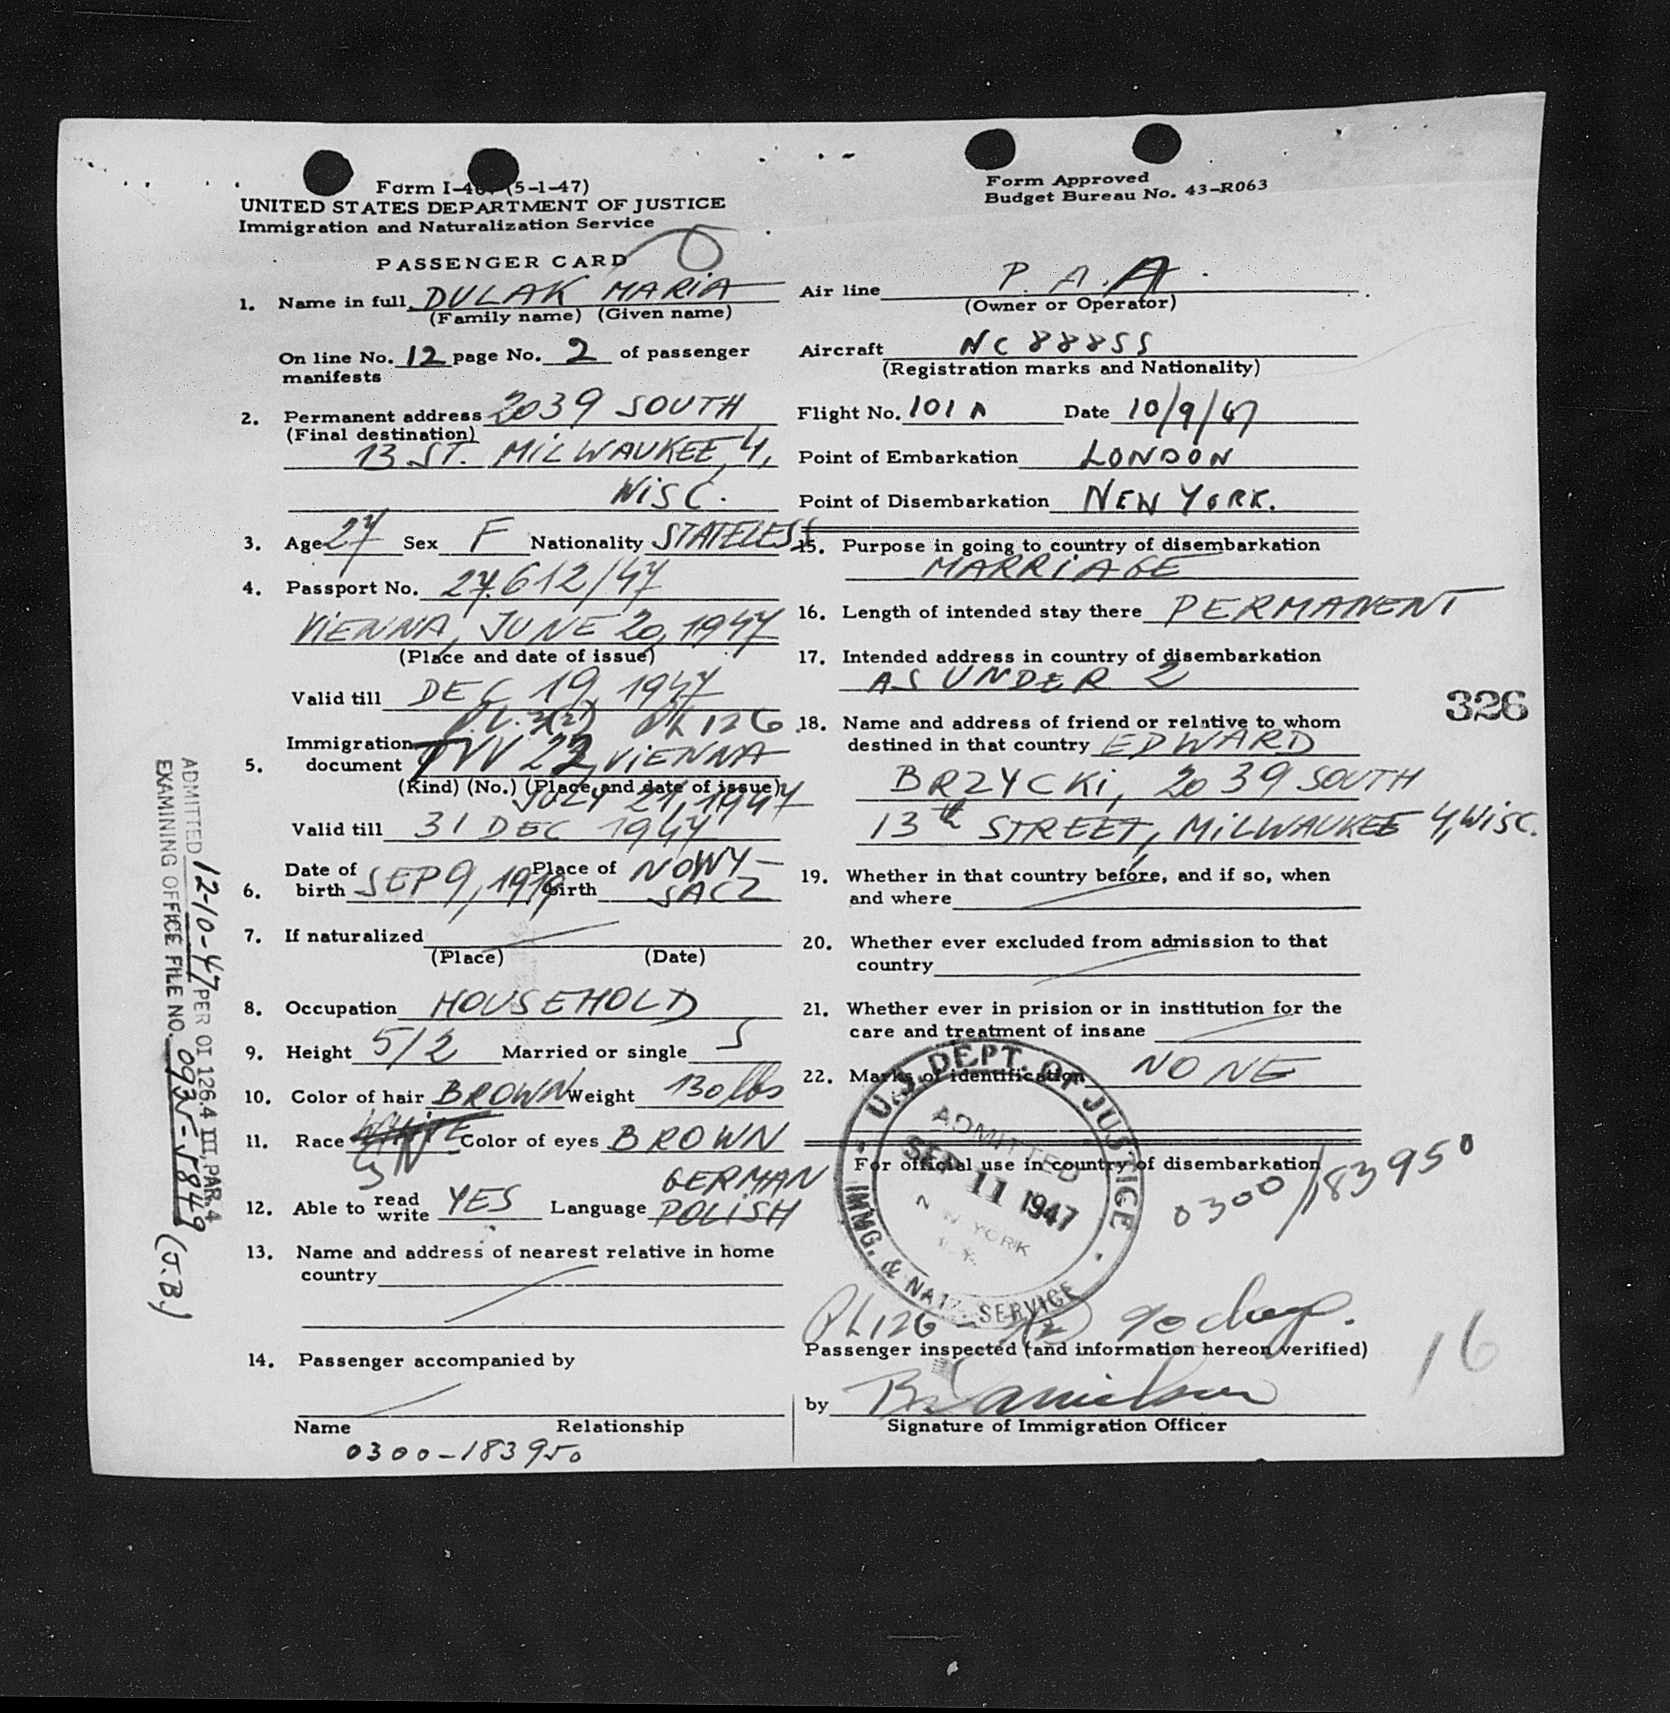 Form I-46 (5-1-47)
UNITED STATES DEPARTMENT OF JUSTICE
Immigration and Naturalization Service
PASSENGER CARD
1. Name in full DULAK MARIA
(Family name) (Given name)
On line No. 12 page No. 2 of passenger
manifests
2. Permanent address 2039 SOUTH
(Final destination)
13 ST. MILWAUKEE, 4,
WISC.
3. Age 27 Sex F Nationality STATELESS
4. Passport No. 27.612/47
VIENNA, JUNE 20, 1947
(Place and date of issue)
Valid till DEC 19, 1947
P.L. 3(2) PL 126
Immigration
5. document 22, VIENNA
(Kind) (No.) (Place and date of issue)
JULY 21, 1947
Valid till 31 DEC 1947
6. Date of birth SEP 9, 1919 Place of birth NOWY-
SACZ
7. If naturalized
(Place) (Date)
8. Occupation HOUSEHOLD
9. Height 5/2 Married or single S
10. Color of hair BROWN Weight 130 lbs
11. Race WHITE Color of eyes BROWN
GERMAN
12. Able to read write YES Language POLISH
13. Name and address of nearest relative in home
country
14. Passenger accompanied by
Name Relationship
0300-183950
Form Approved
Budget Bureau No. 43-R063
Air line P.A.A.
(Owner or Operator)
Aircraft NC 88855
(Registration marks and Nationality)
Flight No. 101 A Date 10/9/47
Point of Embarkation LONDON
Point of Disembarkation NEW YORK.
15. Purpose in going to country of disembarkation
MARRIAGE
16. Length of intended stay there PERMANENT
17. Intended address in country of disembarkation
AS UNDER 2
18. Name and address of friend or relative to whom
destined in that country EDWARD
BRZYCKI, 2039 SOUTH
13th STREET, MILWAUKEE 4, WISC.
19. Whether in that country before, and if so, when
and where
20. Whether ever excluded from admission to that
country
21. Whether ever in prision or in institution for the
care and treatment of insane
22. Marks of identification NONE
For official use in country of disembarkation
0300/183950
U.S. DEPT. OF JUSTICE
ADMITTED
SEP 11 1947
NEW YORK
IMMG. & NATZ. SERVICE
PL 126 - 3(2) 90 days.
Passenger inspected (and information hereon verified)
by
Signature of Immigration Officer
326
16
ADMITTED 12-10-47 PER OI 126.4 III, PAR. 4
EXAMINING OFFICE FILE NO. 0935-5849 (J.B.)